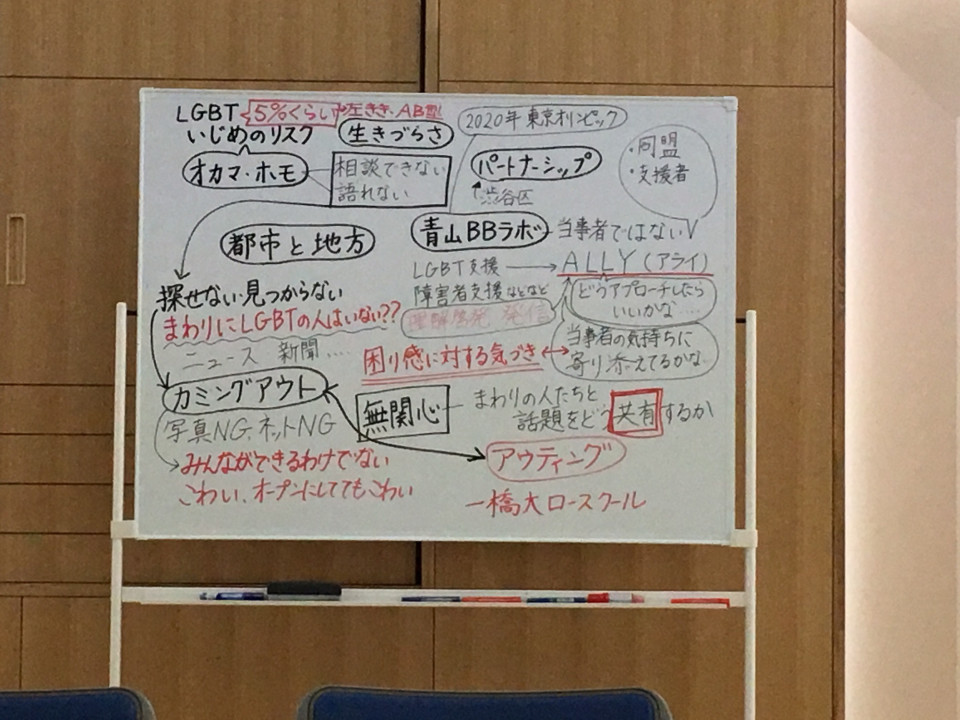 LGBT 5%くらい 左きき、AB型!
いじめのリスク
生きづらさ
オカマ・ホモ
相談できない
語れない
都市と地方
探せない 見つからない
まわりにLGBTの人はいない??
ニュース 新聞....
カミングアウト
写真NG、ネットNG
みんなができるわけでない
こわい、オープンにしててもこわい
2020年 東京オリンピック
パートナーシップ
渋谷区
・同盟
・支援者
青山BBラボ
当事者ではない
LGBT支援
ALLY (アライ)
障害者支援などなど
理解啓発 発信
どうアプローチしたら
いいかな....
困り感に対する気づき
当事者の気持ちに
寄り添えてるかな
無関心
まわりの人たちと
話題をどう共有するか
アウティング
一橋大ロースクール